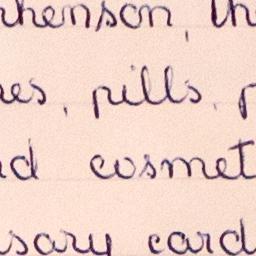 rhenson, th
res, pills, p
nd cosmet
sary card